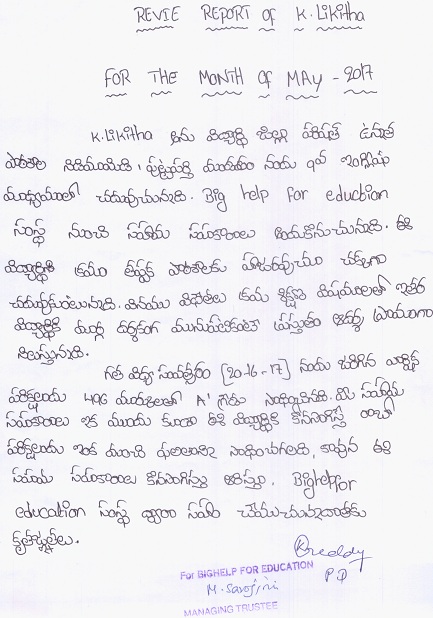 REVIE REPORT of K.Likitha
FOR THE MONTH of MAY - 2017
K.Likitha అను విద్యార్థి జిల్లా పరిషత్ ఉన్నత
పాఠశాల నిడిమామిడి, పుట్టపర్తి మండలం నందు 9వ ఇంగ్లీషు
మాధ్యమంలో చదువుచున్నాది. Big help for eduction
సంస్థ నుంచి సహాయ సహకారాలు అందుకొనుచున్నాది. ఈ
విద్యార్థి క్రమం తప్పక పాఠశాలకు హాజరవుచూ చక్కగా
చదువుకుంటున్నాది.
విద్యార్థులకి
నిలుస్తున్నాది.
గత విద్యా సంవత్సరం [2016-17] నందు జరిగిన వార్షిక
పరీక్షలందు 496 మార్కులతో A' గ్రేడు సాధించినది. మీ సహాయ
సహకారాలు ఇక ముందు కూడా ఈ విద్యార్థికి కొనసాగిస్తే రాబోవు
పరీక్షలందు ఇంకా మంచి ఫలితాలని సాధించగలదు, కావున ఈ
సహాయ సహకారాలు కొనసాగిస్తారని ఆశిస్తూ. Bighelpfor
education సంస్థ ద్వారా సహాయం చేయుచున్నదాతకు
కృతజ్ఞతలు.
Kreddy
PD
For BIGHELP FOR EDUCATION
M. Sarojini
MANAGING TRUSTEE